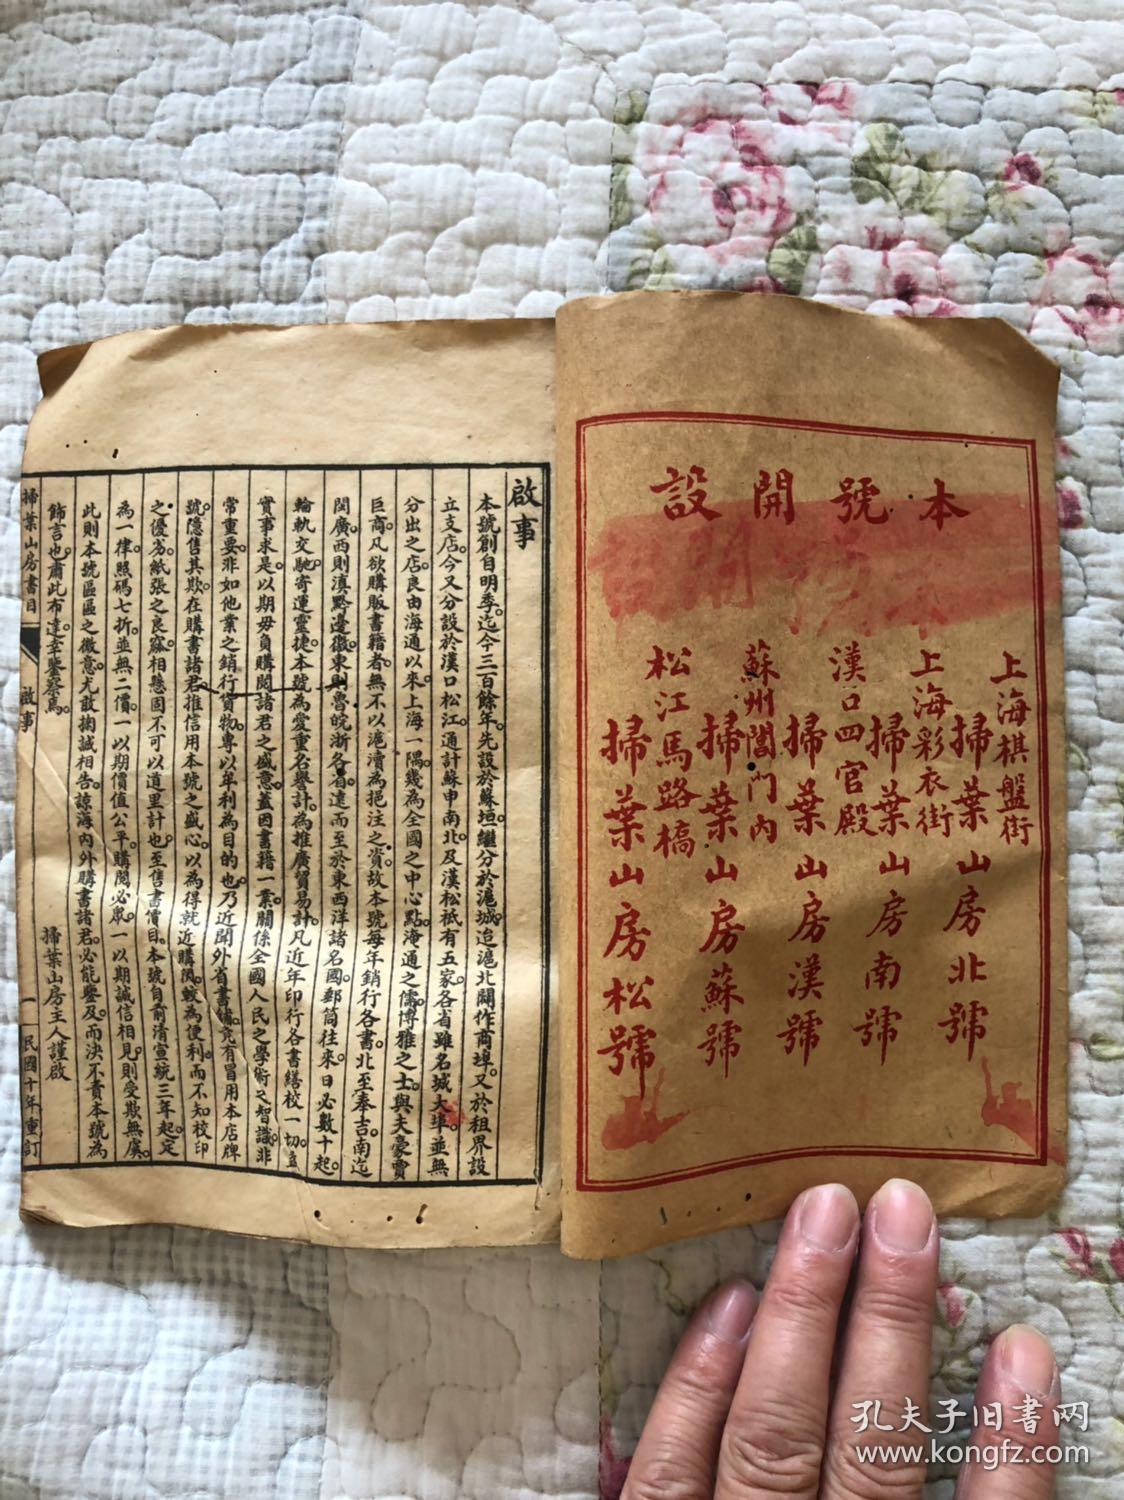 本號開設
上海棋盤街
掃葉山房北號
上海彩衣街
掃葉山房南號
漢口四官殿
掃葉山房漢號
蘇州閶門內
掃葉山房蘇號
松江馬路橋
掃葉山房松號
啟事
本號創自明季。迄今三百餘年。先設於蘇垣。繼分於滬城。迨滬北闢作商埠。又於租界設
立支店。今又分設於漢口松江。通計蘇申南北及漢松祇有五家。各省雖名城大埠。並無
分出之店。良由海通以來。上海一隅。幾為全國之中心點。淹通之儒。博雅之士。與夫豪賈
巨商。凡欲購販書籍者。無不以滬瀆為挹注之資。故本號每年銷行各書。北至奉吉。南迄
閩廣。西則滇黔邊徼。東則魯皖浙各省。遠而至於東西洋諸名國。郵筒往來。日必數十起。
輪軌交馳。寄運靈捷。本號為愛重名譽計。為推廣貿易計。凡近年印行各書。繕校一切。立
實事求是。以期毋負購閱諸君之盛意。蓋因書籍一業。關係全國人民之學術之智識。非
常重要。非如他業之銷行貨物。專以年利為目的也。乃近聞外省書坊。竟有冒用本店牌
號。隱售其欺。在購書諸君推信用本號之盛心。以為得就近購閱。較為便利。而不知校印
之優劣。紙張之良窳。相懸固不可以道里計也。至售書價目。本號自前清宣統三年起。定
為一律照碼七折。並無二價。一以期價值公平。購閱必眾。一以期誠信相見。則受欺無虞。
此則本號區區之微意。尤敢掬誠相告。諒海內外購書諸君。必能鑒及。而決不責本號為
飾言也。肅此布達。幸鑒察焉。
掃葉山房主人謹啟
掃葉山房書目
啟事
一
民國十年重訂
孔夫子旧书网
www.kongfz.com